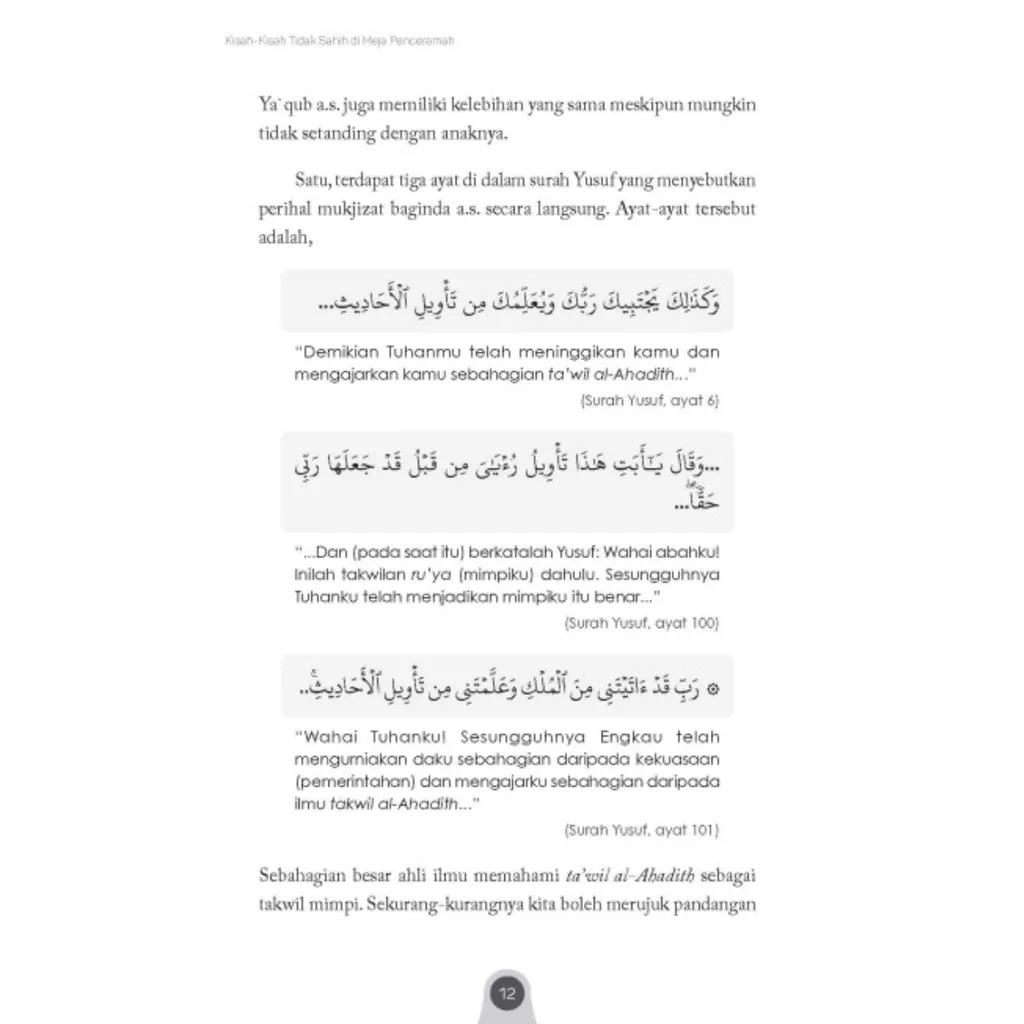 Kisah-Kisah Tidak Sahih di Meja Penceramah
Ya`qub a.s. juga memiliki kelebihan yang sama meskipun mungkin
tidak setanding dengan anaknya.
Satu, terdapat tiga ayat di dalam surah Yusuf yang menyebutkan
perihal mukjizat baginda a.s. secara langsung. Ayat-ayat tersebut
adalah,
وَكَذَٰلِكَ يَجۡتَبِيكَ رَبُّكَ وَيُعَلِّمُكَ مِن تَأۡوِيلِ ٱلۡأَحَادِيثِ...
“Demikian Tuhanmu telah meninggikan kamu dan
mengajarkan kamu sebahagian ta’wil al-Ahadith...”
(Surah Yusuf, ayat 6)
...وَقَالَ يَـٰٓأَبَتِ هَـٰذَا تَأۡوِيلُ رُءۡيَـٰيَ مِن قَبۡلُ قَدۡ جَعَلَهَا رَبِّي
حَقّٗاۖ...
“...Dan (pada saat itu) berkatalah Yusuf: Wahai abahku!
Inilah takwilan ru’ya (mimpiku) dahulu. Sesungguhnya
Tuhanku telah menjadikan mimpiku itu benar...”
(Surah Yusuf, ayat 100)
۞ رَبِّ قَدۡ ءَاتَيۡتَنِي مِنَ ٱلۡمُلۡكِ وَعَلَّمۡتَنِي مِن تَأۡوِيلِ ٱلۡأَحَادِيثِۚ..
“Wahai Tuhanku! Sesungguhnya Engkau telah
mengurniakan daku sebahagian daripada kekuasaan
(pemerintahan) dan mengajarku sebahagian daripada
ilmu takwil al-Ahadith...”
(Surah Yusuf, ayat 101)
Sebahagian besar ahli ilmu memahami ta’wil al-Ahadith sebagai
takwil mimpi. Sekurang-kurangnya kita boleh merujuk pandangan
12